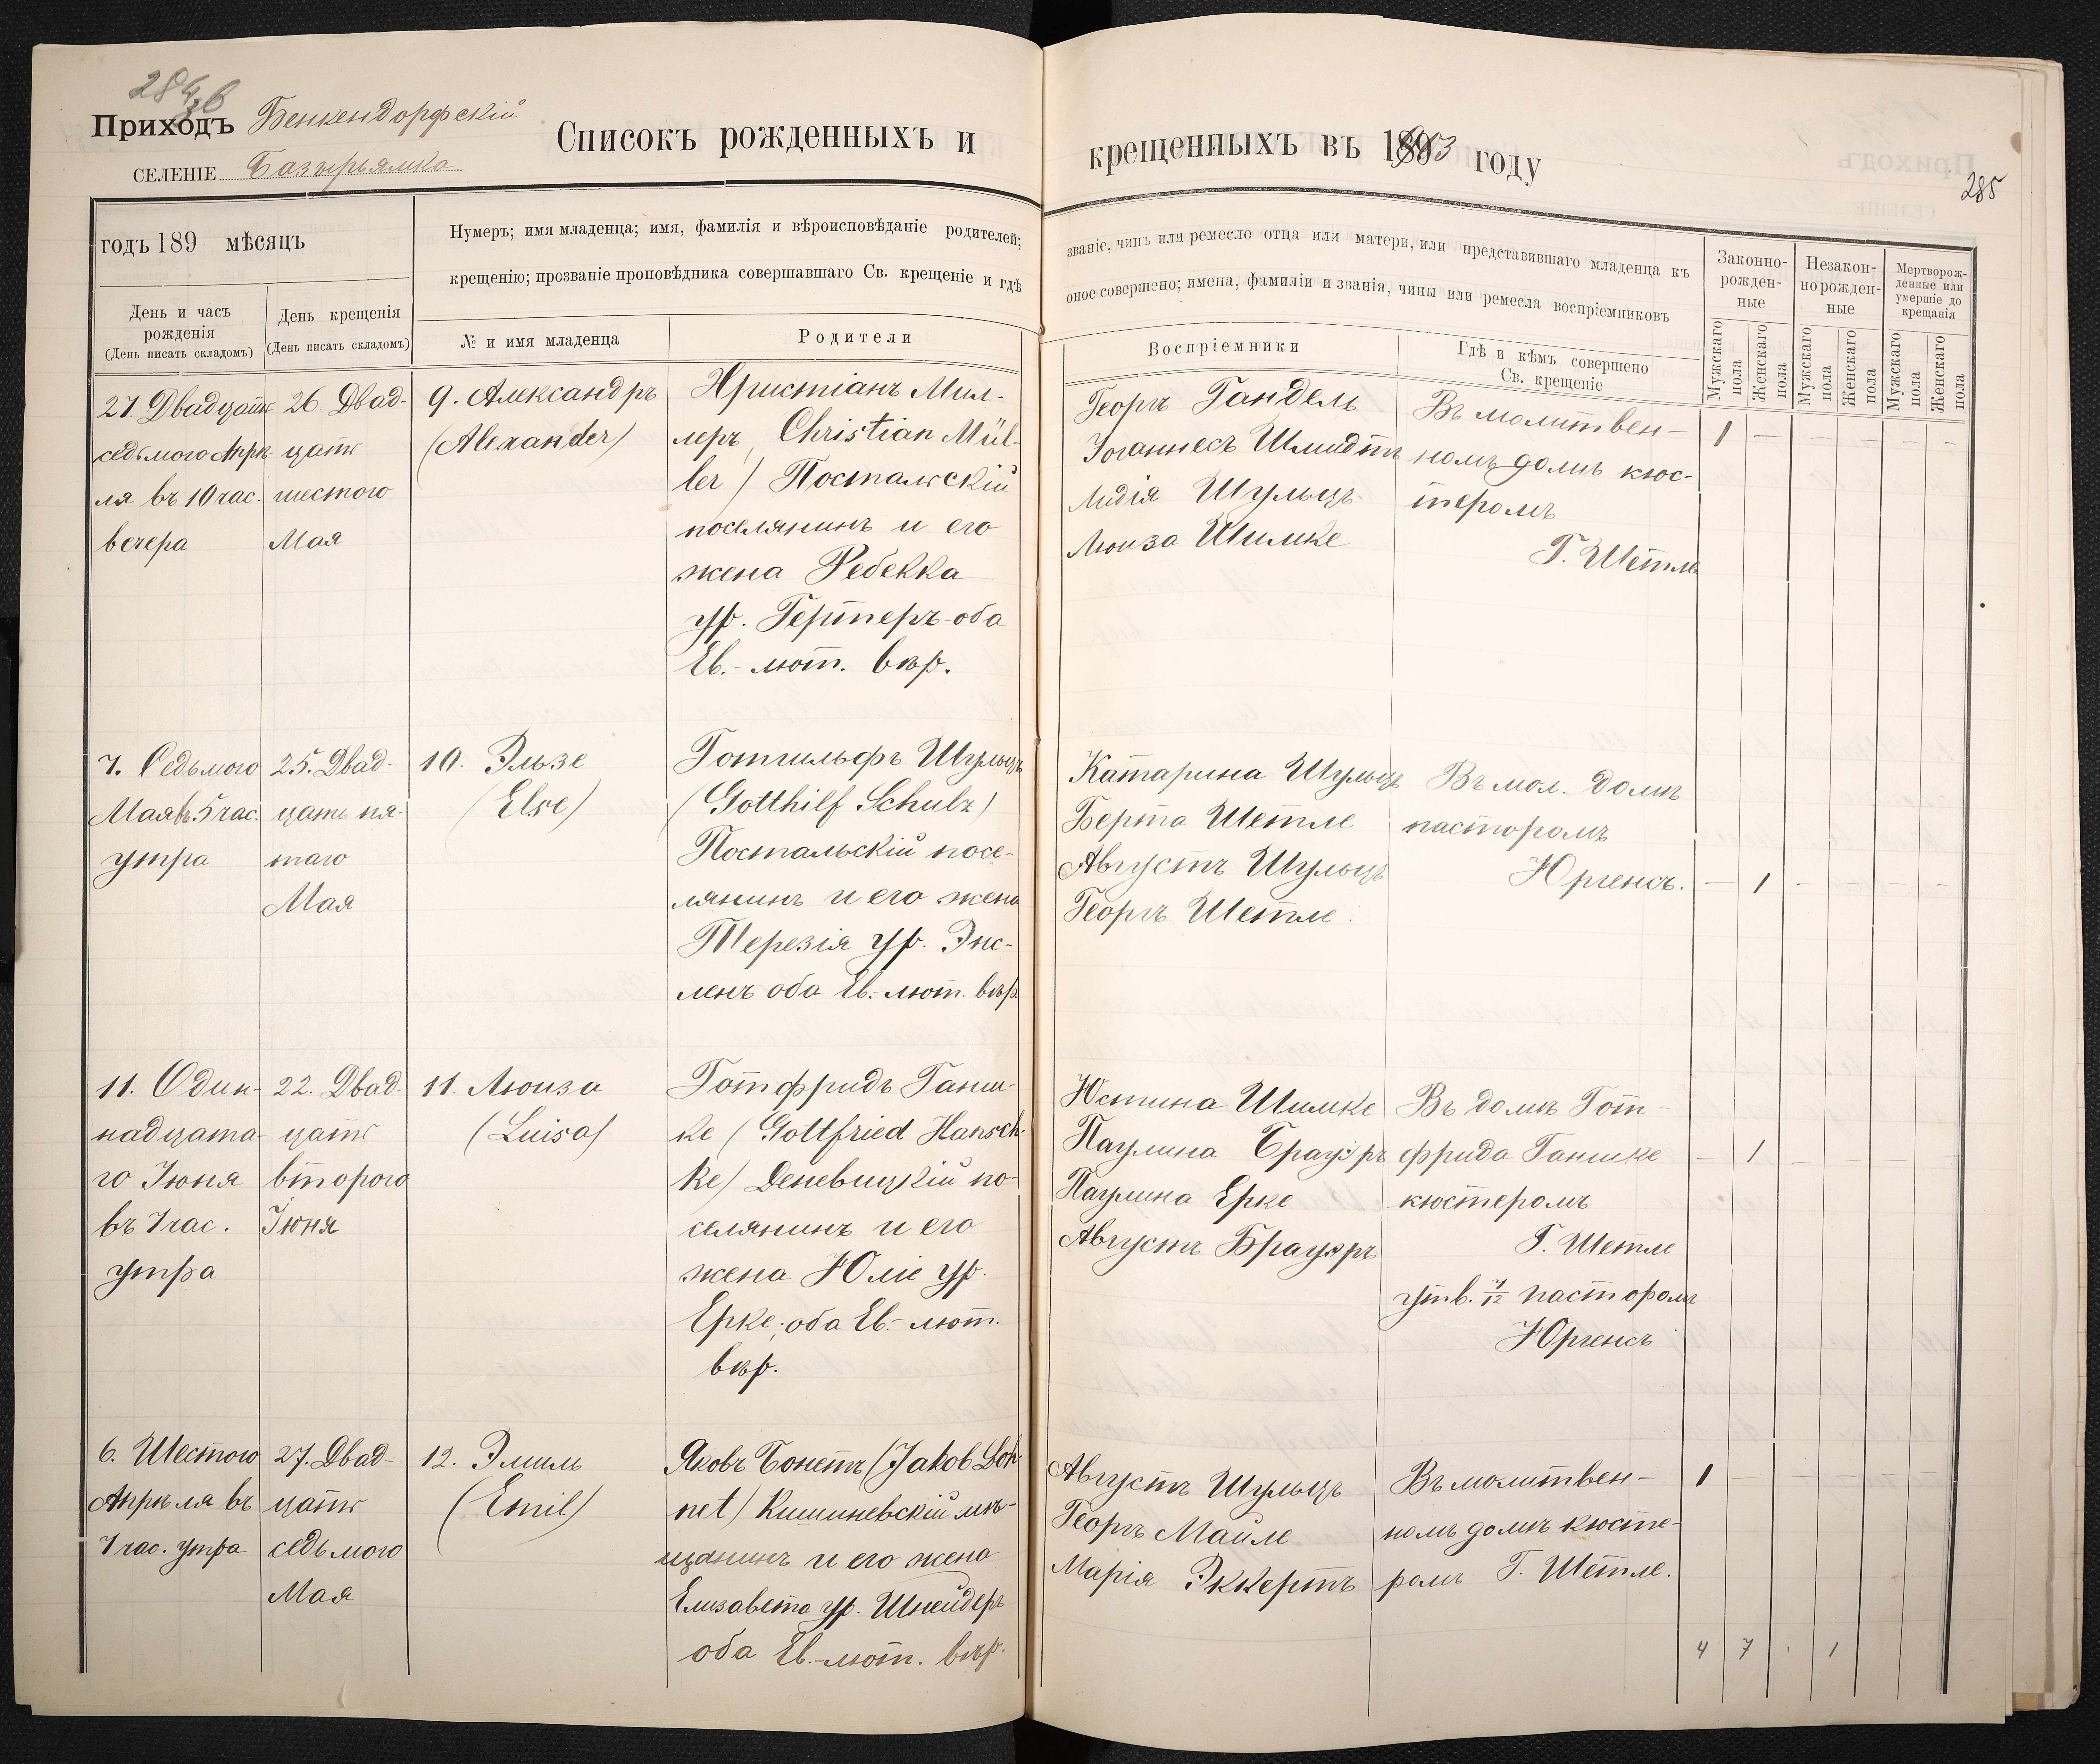 284/б
Приходъ Бенкендорфскій
СЕЛЕНІЕ Базырьямка
Списокъ рожденныхъ и
крещенныхъ въ 1903 году
285
годъ 189 мѣсяцъ
День и часъ рожденія
(День писать складомъ)
День крещенія
(День писать складомъ)
Нумеръ; имя младенца; имя, фамилія и вѣроисповѣданіе родителей;
крещенію; прозваніе проповѣдника совершавшаго Св. крещеніе и гдѣ
№ и имя младенца
Родители
званіе, чинъ или ремесло отца или матери, или представившаго младенца къ
оное совершено; имена, фамиліи и званія, чины или ремесла воспріемниковъ
Воспріемники
Гдѣ и кѣмъ совершено
Св. крещеніе
Законно-
рожден-
ные
Незакон-
норожден-
ные
Мертворож-
денные или
умершіе до
крещанія
Мужскаго пола
Женскаго пола
Мужскаго пола
Женскаго пола
Мужскаго пола
Женскаго пола
27. Двадцать
седьмого Апрѣ-
ля въ 10 час.
вечера
26. Двад-
цать
шестого
Мая
9. Александръ
(Alexander)
Христіанъ Мил-
леръ (Christian Mül-
ler) Постальскій
поселянинъ и его
жена Ребекка
ур. Гертеръ оба
Ев.-лют. вѣр.
Георгъ Гандель
Іоганнесъ Шмидтъ
Лидія Шульцъ
Люиза Шимке
Въ молитвен-
номъ домѣ кюс-
теромъ
Г. Шетле
1 — — — — —
7. Седьмого
Мая въ 5 час.
утра
25. Двад-
цать пя-
таго
Мая
10. Эльзе
(Else)
Готгильфъ Шульцъ
(Gotthilf Schulz)
Постальскій посе-
лянинъ и его жена
Терезія ур. Энс-
ленъ оба Ев.-лют. вѣр.
Катарина Шульцъ
Берта Шетле
Августъ Шульцъ
Георгъ Шетле.
Въ мол. домѣ
пасторомъ
Юргенсъ.
— 1 — — — —
11. Один-
надцата-
го Іюня
въ 7 час.
утра
22. Двад-
цать
второго
Іюня
11. Люиза
(Luisa)
Готфридъ Ганш-
ке (Gottfried Hansch-
ke) Деневицкій по-
селянинъ и его
жена Юліе ур.
Ерке, оба Ев.-лют.
вѣр.
Юстина Шимке
Паулина Брауэръ
Паулина Ерке
Августъ Брауэръ
Въ домѣ Гот-
фрида Ганшке
кюстеромъ
Г. Шетле
утв. 7/12 пасторомъ
Юргенсъ
— 1 — — — —
6. Шестого
Апрѣля въ
7 час. утра
27. Двад-
цать
седьмого
Мая
12. Эмиль
(Emil)
Яковъ Бонетъ (Jakob Bon-
net) Кишиневскій мѣ-
щанинъ и его жена
Елизавета ур. Шнейдеръ
оба Ев.-лют. вѣр.
Августъ Шульцъ
Георгъ Майле
Марія Эккертъ
Въ молитвен-
номъ домѣ кюсте-
ромъ Г. Шетле.
1 — — — — —
4 7 · 1